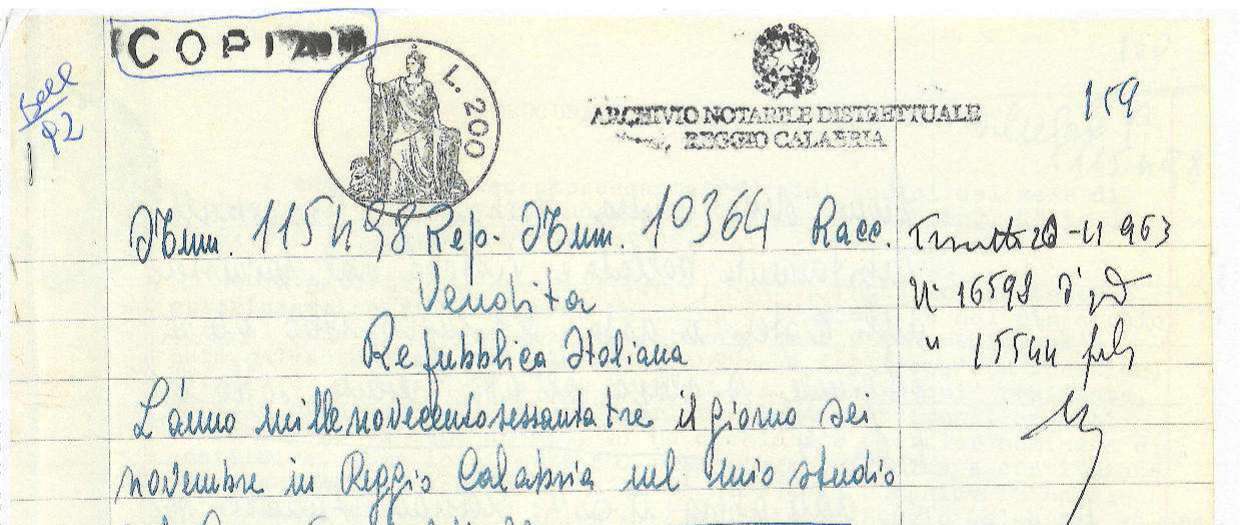 COPIA
L. 200
ARCHIVIO NOTARILE DISTRETTUALE
REGGIO CALABRIA
159
92
Num. 115498 Rep. Num. 10364 Racc.
Vendita
Repubblica Italiana
L'anno millenovecentosessantatre il giorno sei
novembre in Reggio Calabria nel mio studio
-11 963
N° 16598 d'
" 15544